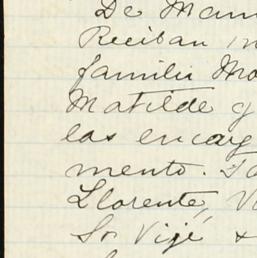 De Mam
Reciban
familia Mo
Matilde y
las encarg
mento.
Llorente, V
Sr Vijé &